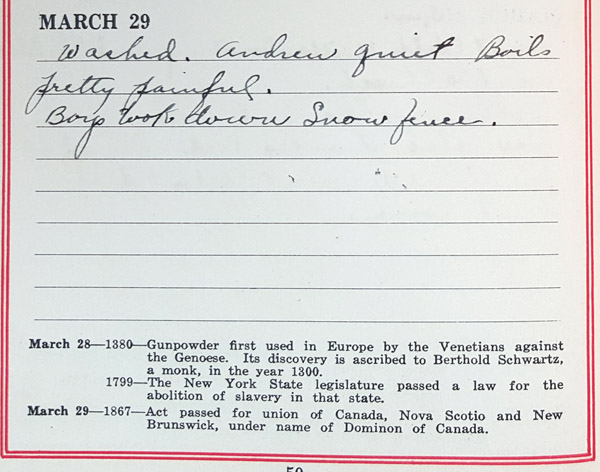 MARCH 29
Washed. Andrew quiet Boils
pretty painful.
Boys took down Snow fence.
March 28—1380—Gunpowder first used in Europe by the Venetians against
the Genoese. Its discovery is ascribed to Berthold Schwartz,
a monk, in the year 1300.
1799—The New York State legislature passed a law for the
abolition of slavery in that state.
March 29—1867—Act passed for union of Canada, Nova Scotio and New
Brunswick, under name of Dominon of Canada.